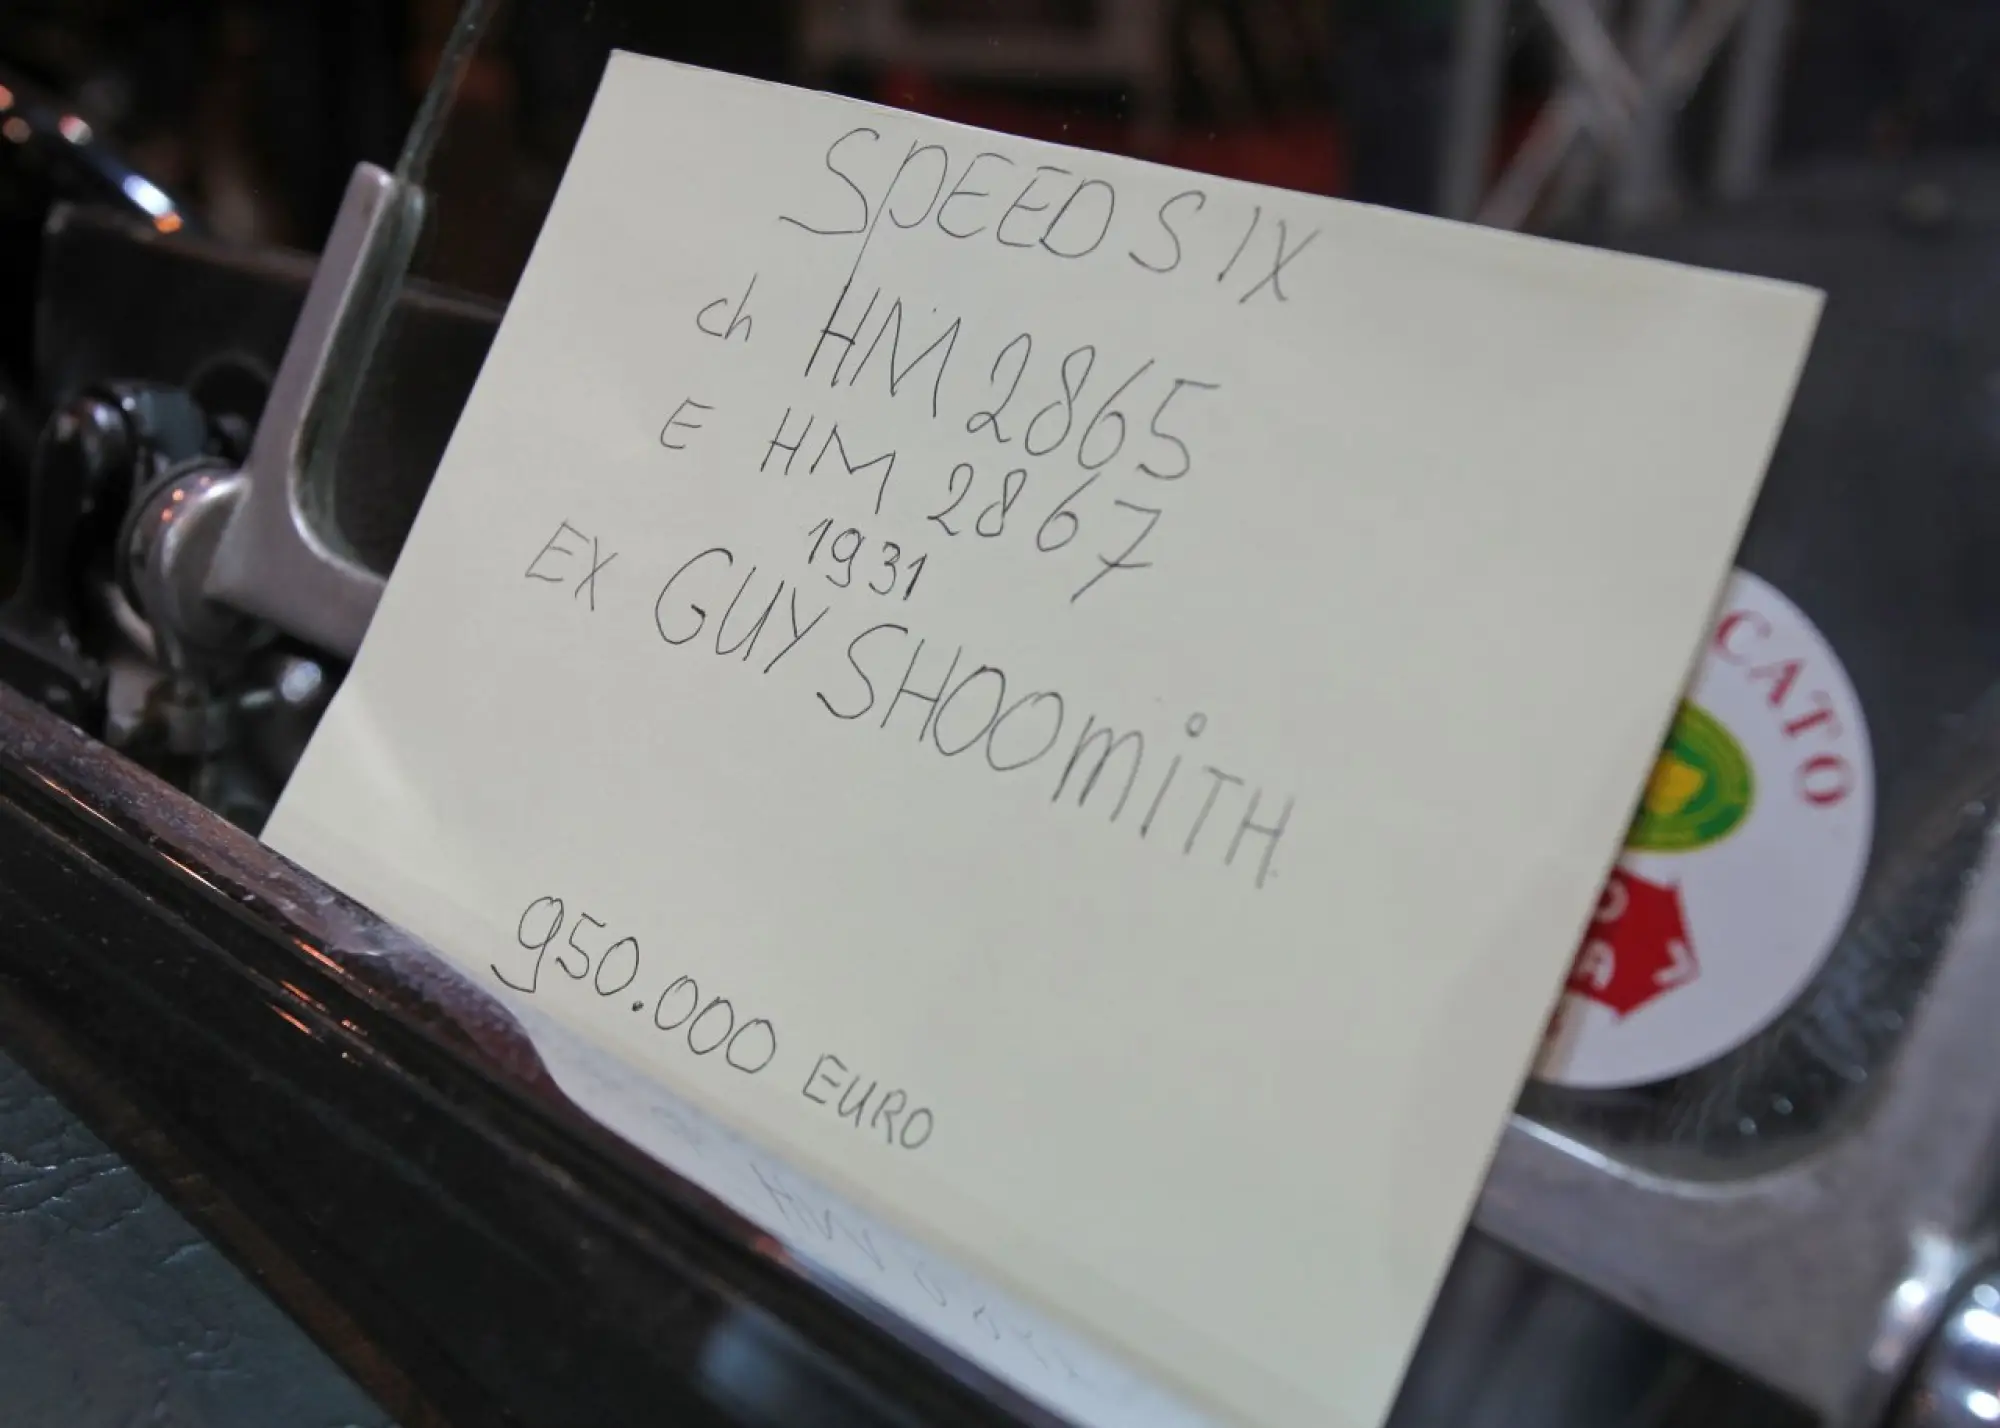 SPEED SIX
ch HM 2865
E HM 2867
1931
EX GUY SHOOMiTH
950.000 EURO
CATO